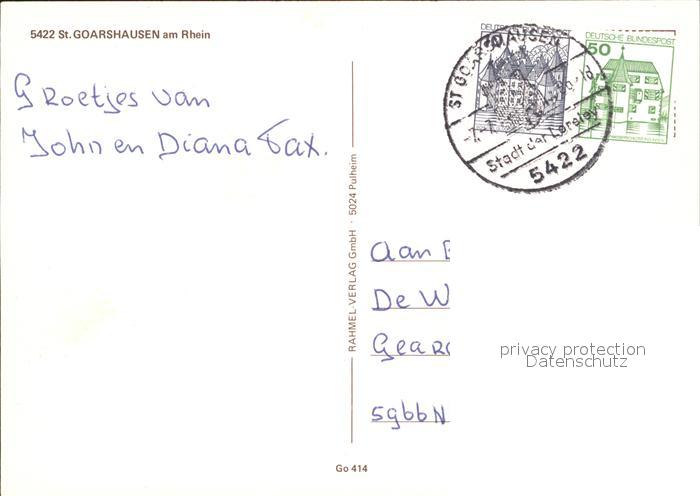 5422 St. GOARSHAUSEN am Rhein
Groetjes van
John en Diana Tax.
RAHMEL-VERLAG GmbH · 5024 Pulheim
Go 414
DEUTSCHE BUNDESPOST
DEUTSCHE BUNDESPOST
50
ST GOARSHAUSEN
Stadt der Loreley
5422
Aan
De W
Gear
5966 N
privacy protection
Datenschutz